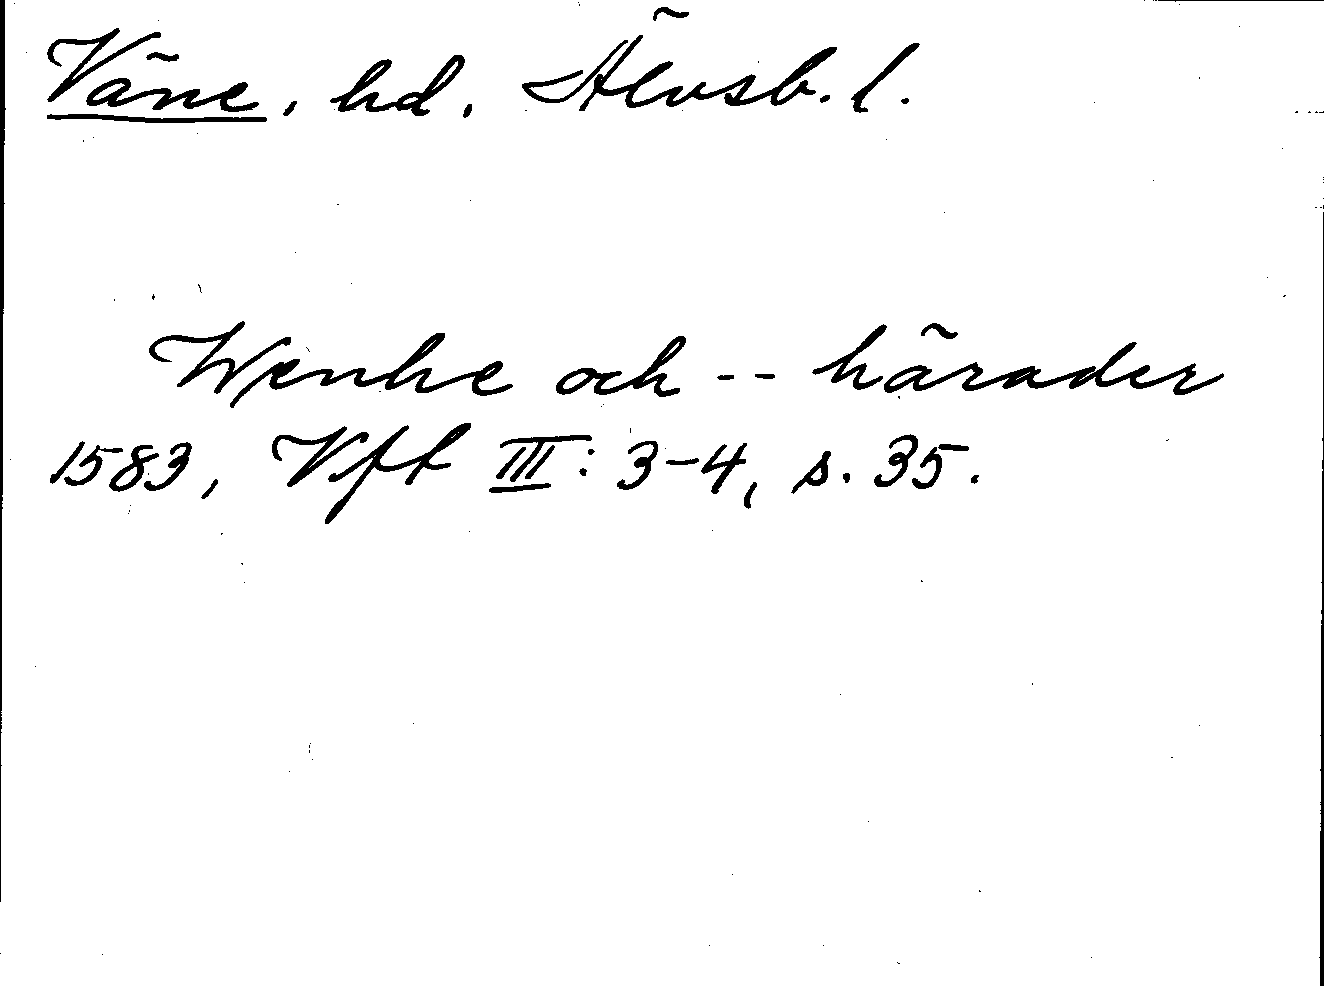 Väne, hd. Älvsb. l.
Wenhe och -- härader
1583, Vft III: 3-4, s. 35.